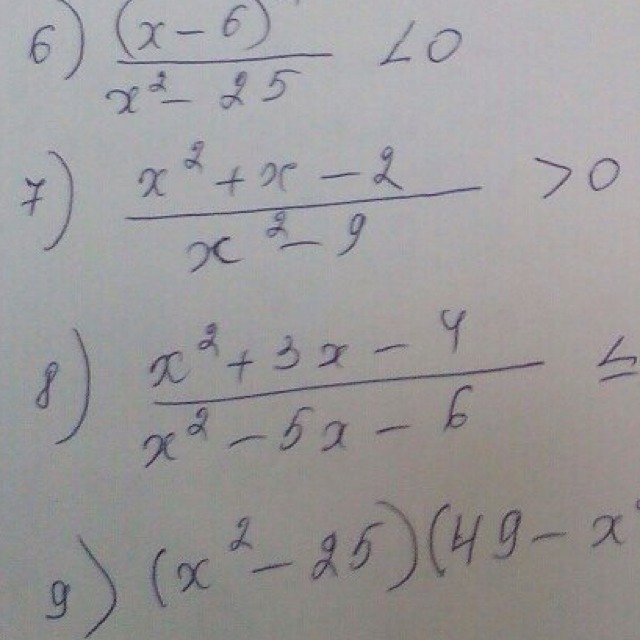 6) (x - 6)
x² - 25
< 0
7) x² + x - 2
x² - 9
> 0
8) x² + 3x - 4
x² - 5x - 6
≤
9) (x² - 25)(49 - x